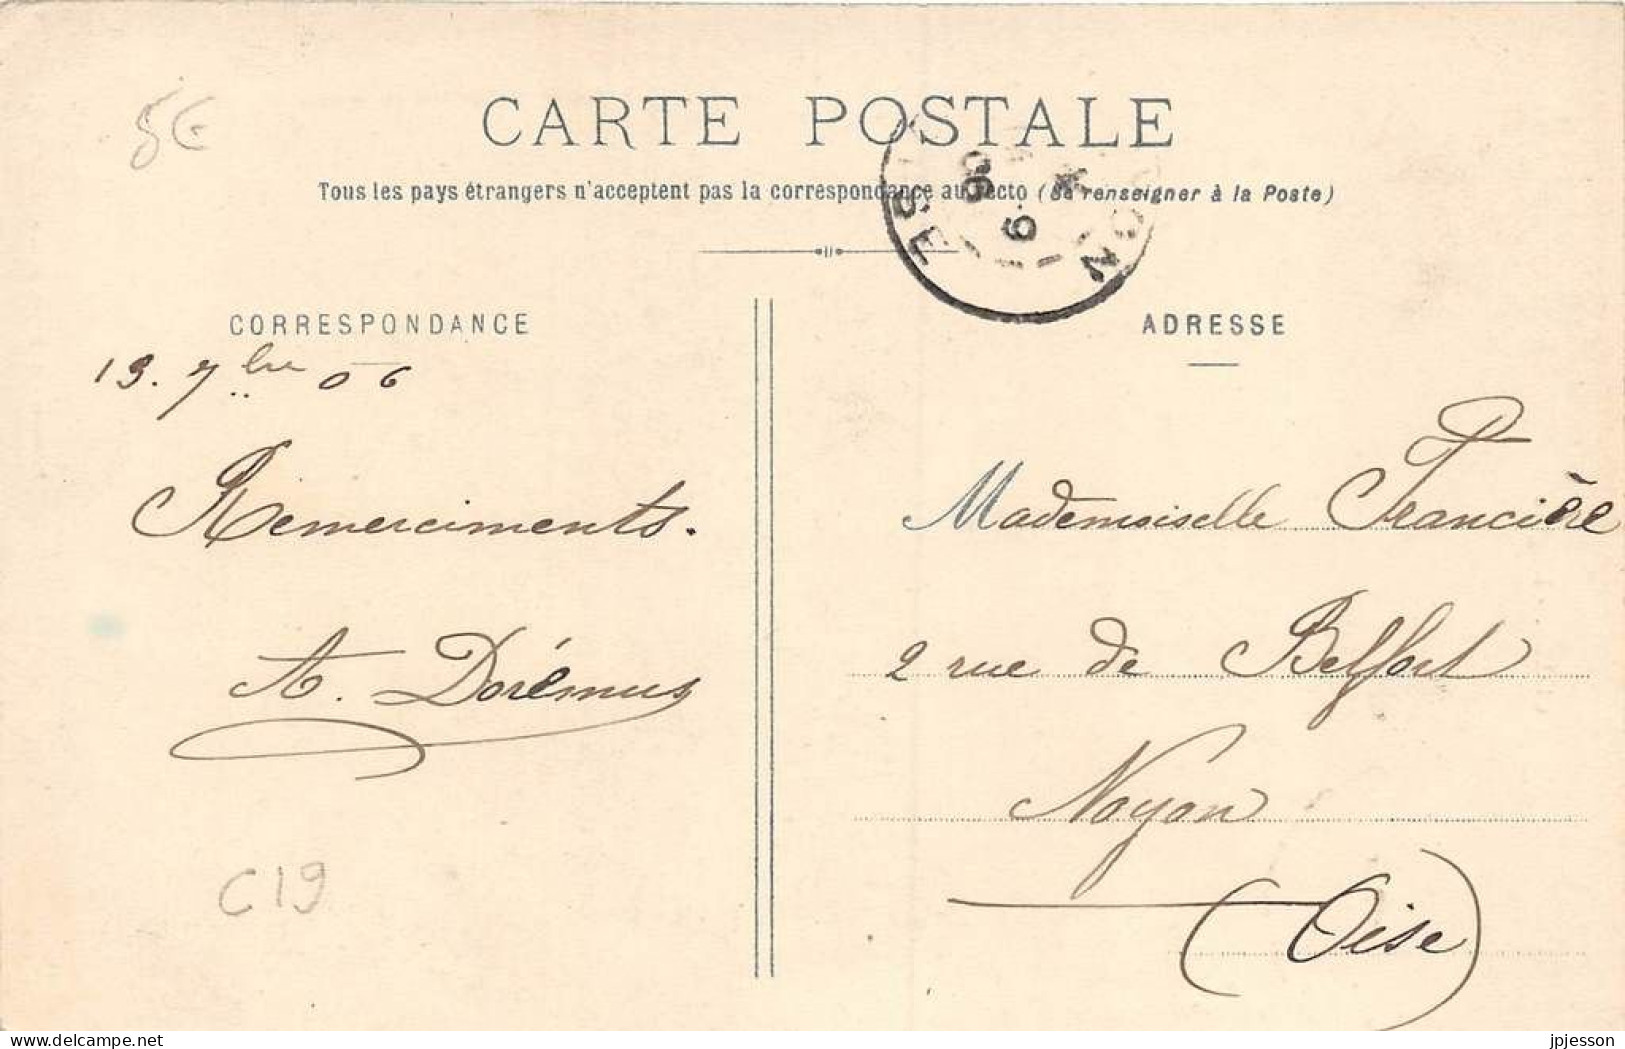 5€
CARTE POSTALE
Tous les pays étrangers n'acceptent pas la correspondance au recto (Se renseigner à la Poste)
06
9
NOYON
OISE
CORRESPONDANCE
ADRESSE
19. 7bre 06
Remerciments.
A. Dorémus
Mademoiselle Francière
2 rue de Belfort
Noyon
(Oise)
C19
delcampe.net
jpjesson